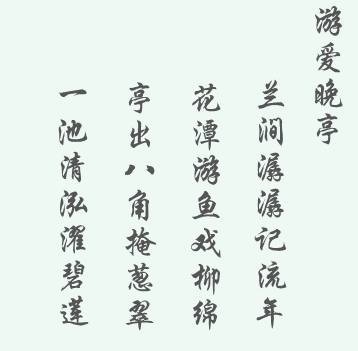 游爱晚亭
兰涧潺潺记流年
花潭游鱼戏柳绵
亭出八角掩葱翠
一池清泓濯碧莲